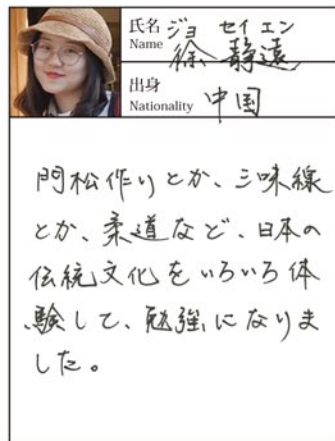 氏名 ジョ セイ エン
Name 徐 静遠
出身
Nationality 中国
門松作りとか、三味線
とか、柔道など、日本の
伝統文化をいろいろ体
験して、勉強になりま
した。